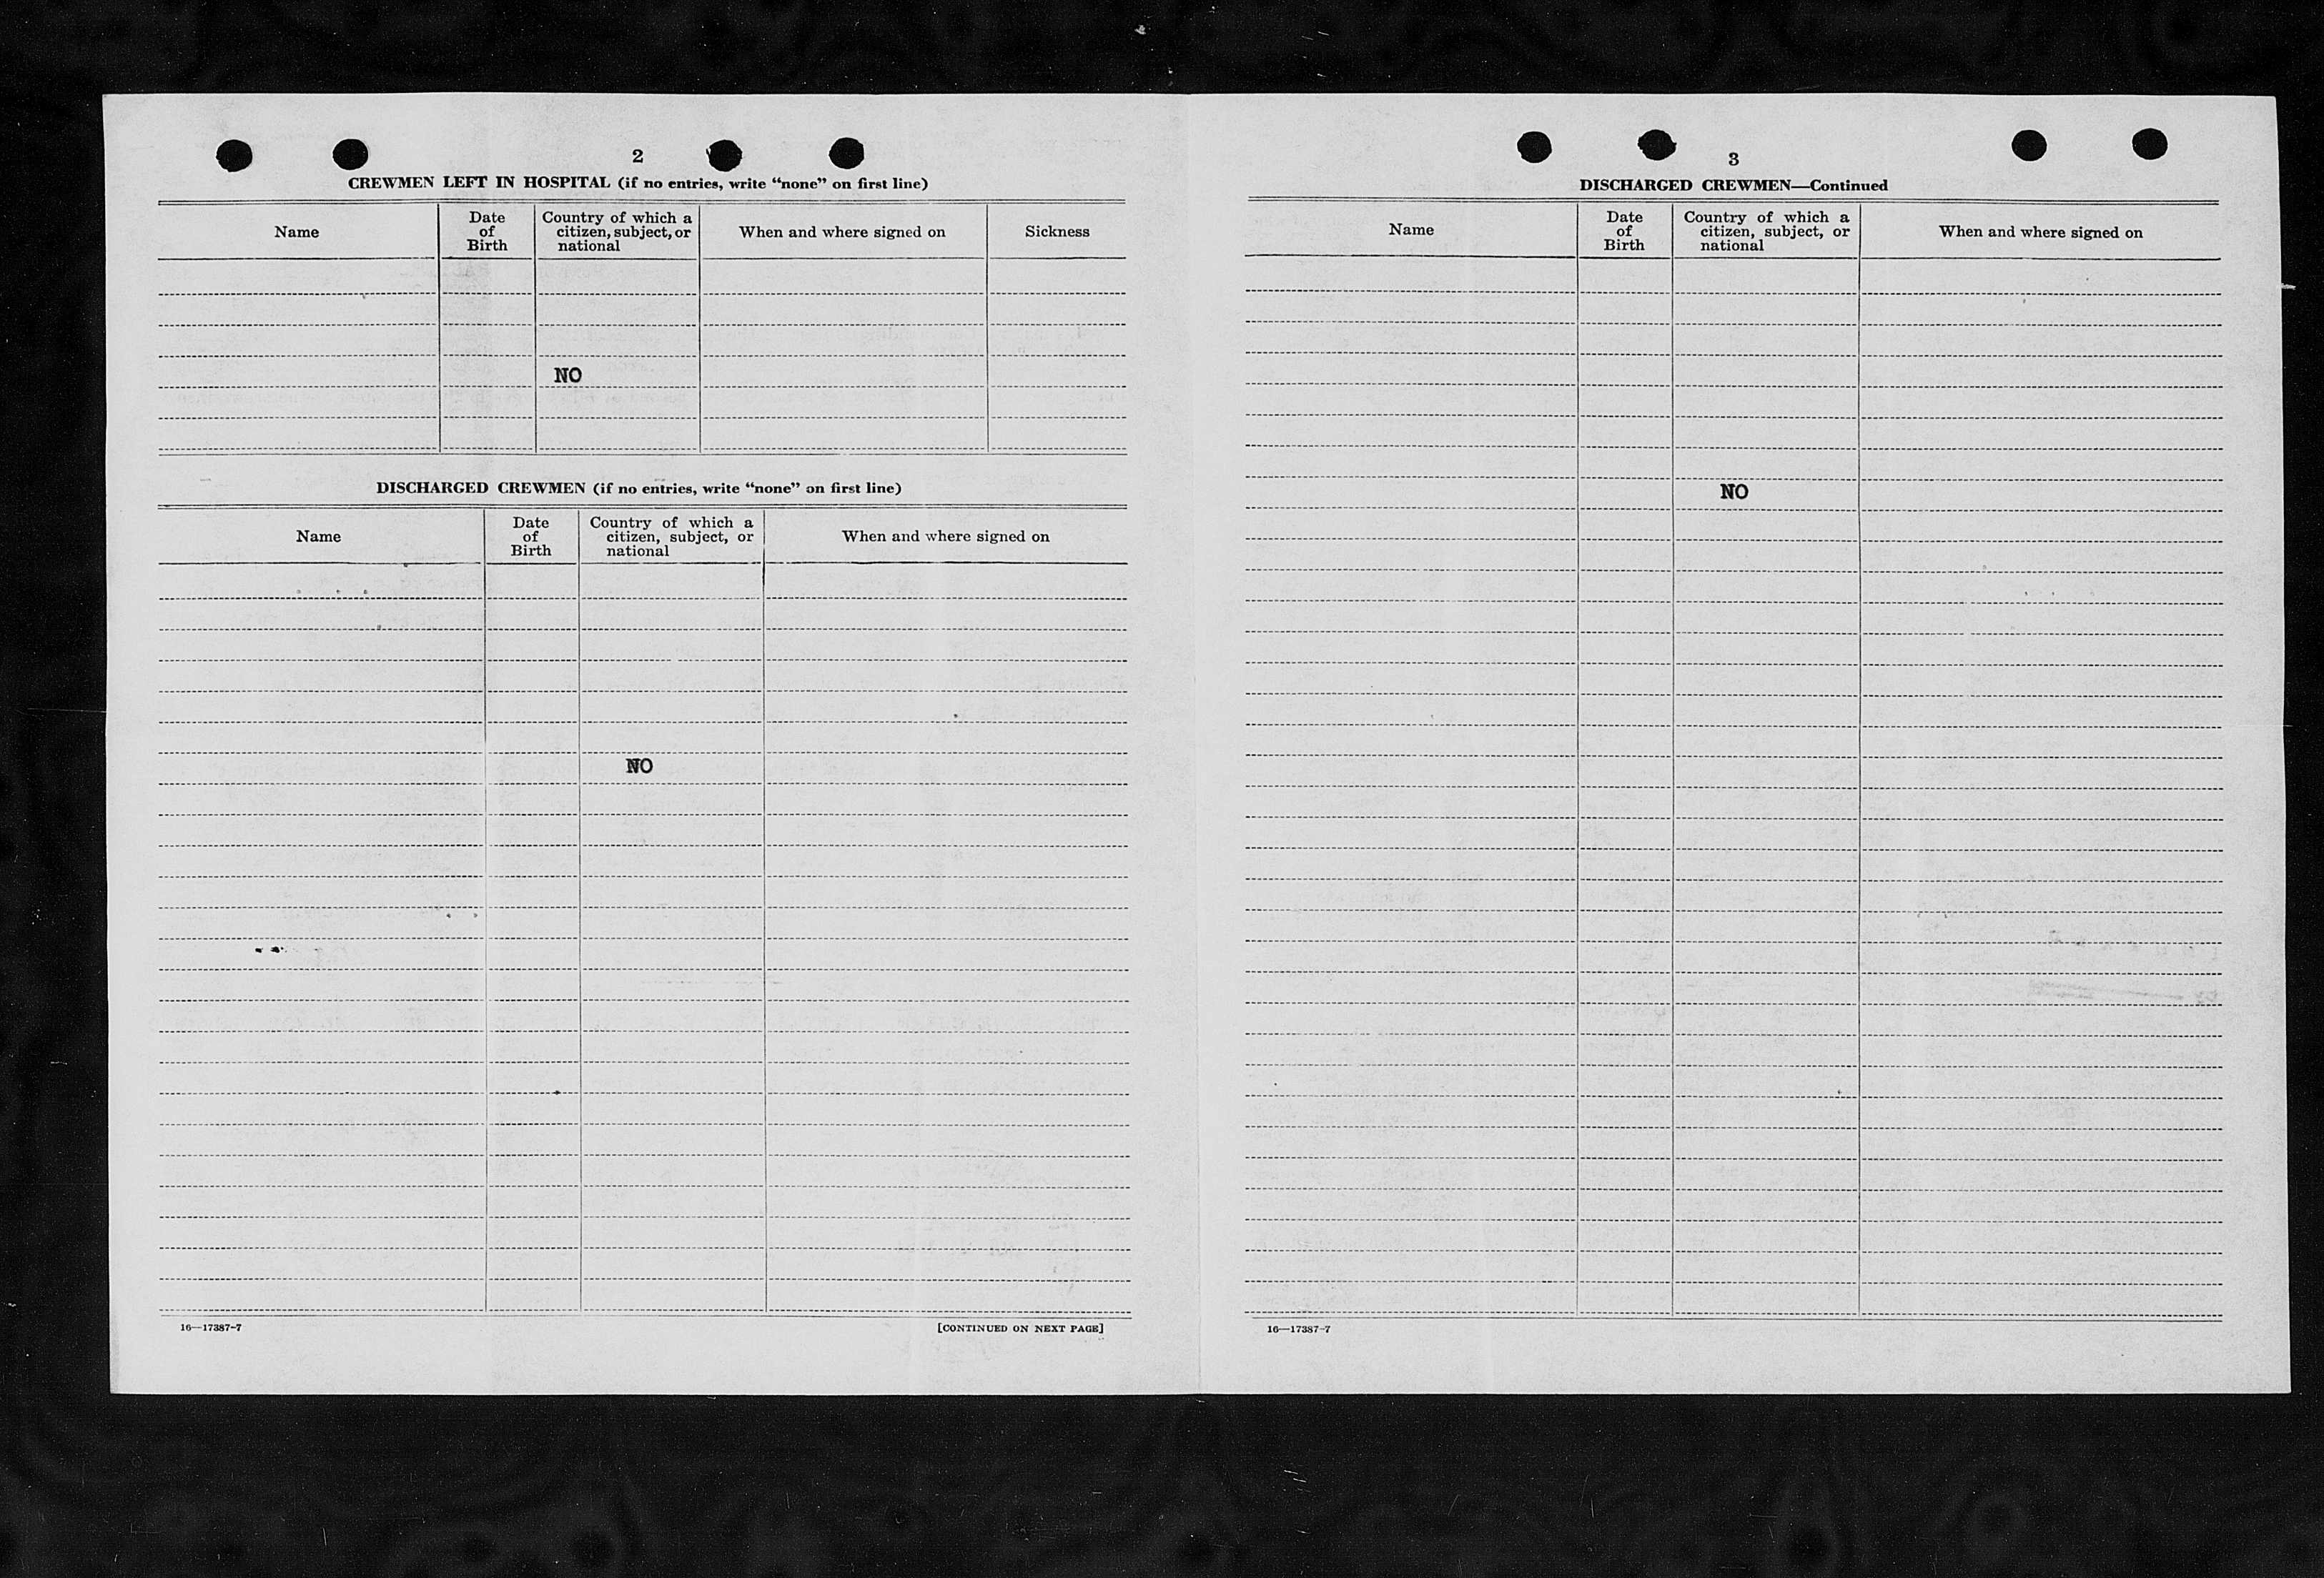 2
CREWMEN LEFT IN HOSPITAL (if no entries, write “none” on first line)
Name
Date of Birth
Country of which a citizen, subject, or national
When and where signed on
Sickness
NO
DISCHARGED CREWMEN (if no entries, write “none” on first line)
Name
Date of Birth
Country of which a citizen, subject, or national
When and where signed on
NO
16—17387-7
[CONTINUED ON NEXT PAGE]
3
DISCHARGED CREWMEN—Continued
Name
Date of Birth
Country of which a citizen, subject, or national
When and where signed on
NO
16—17387-7